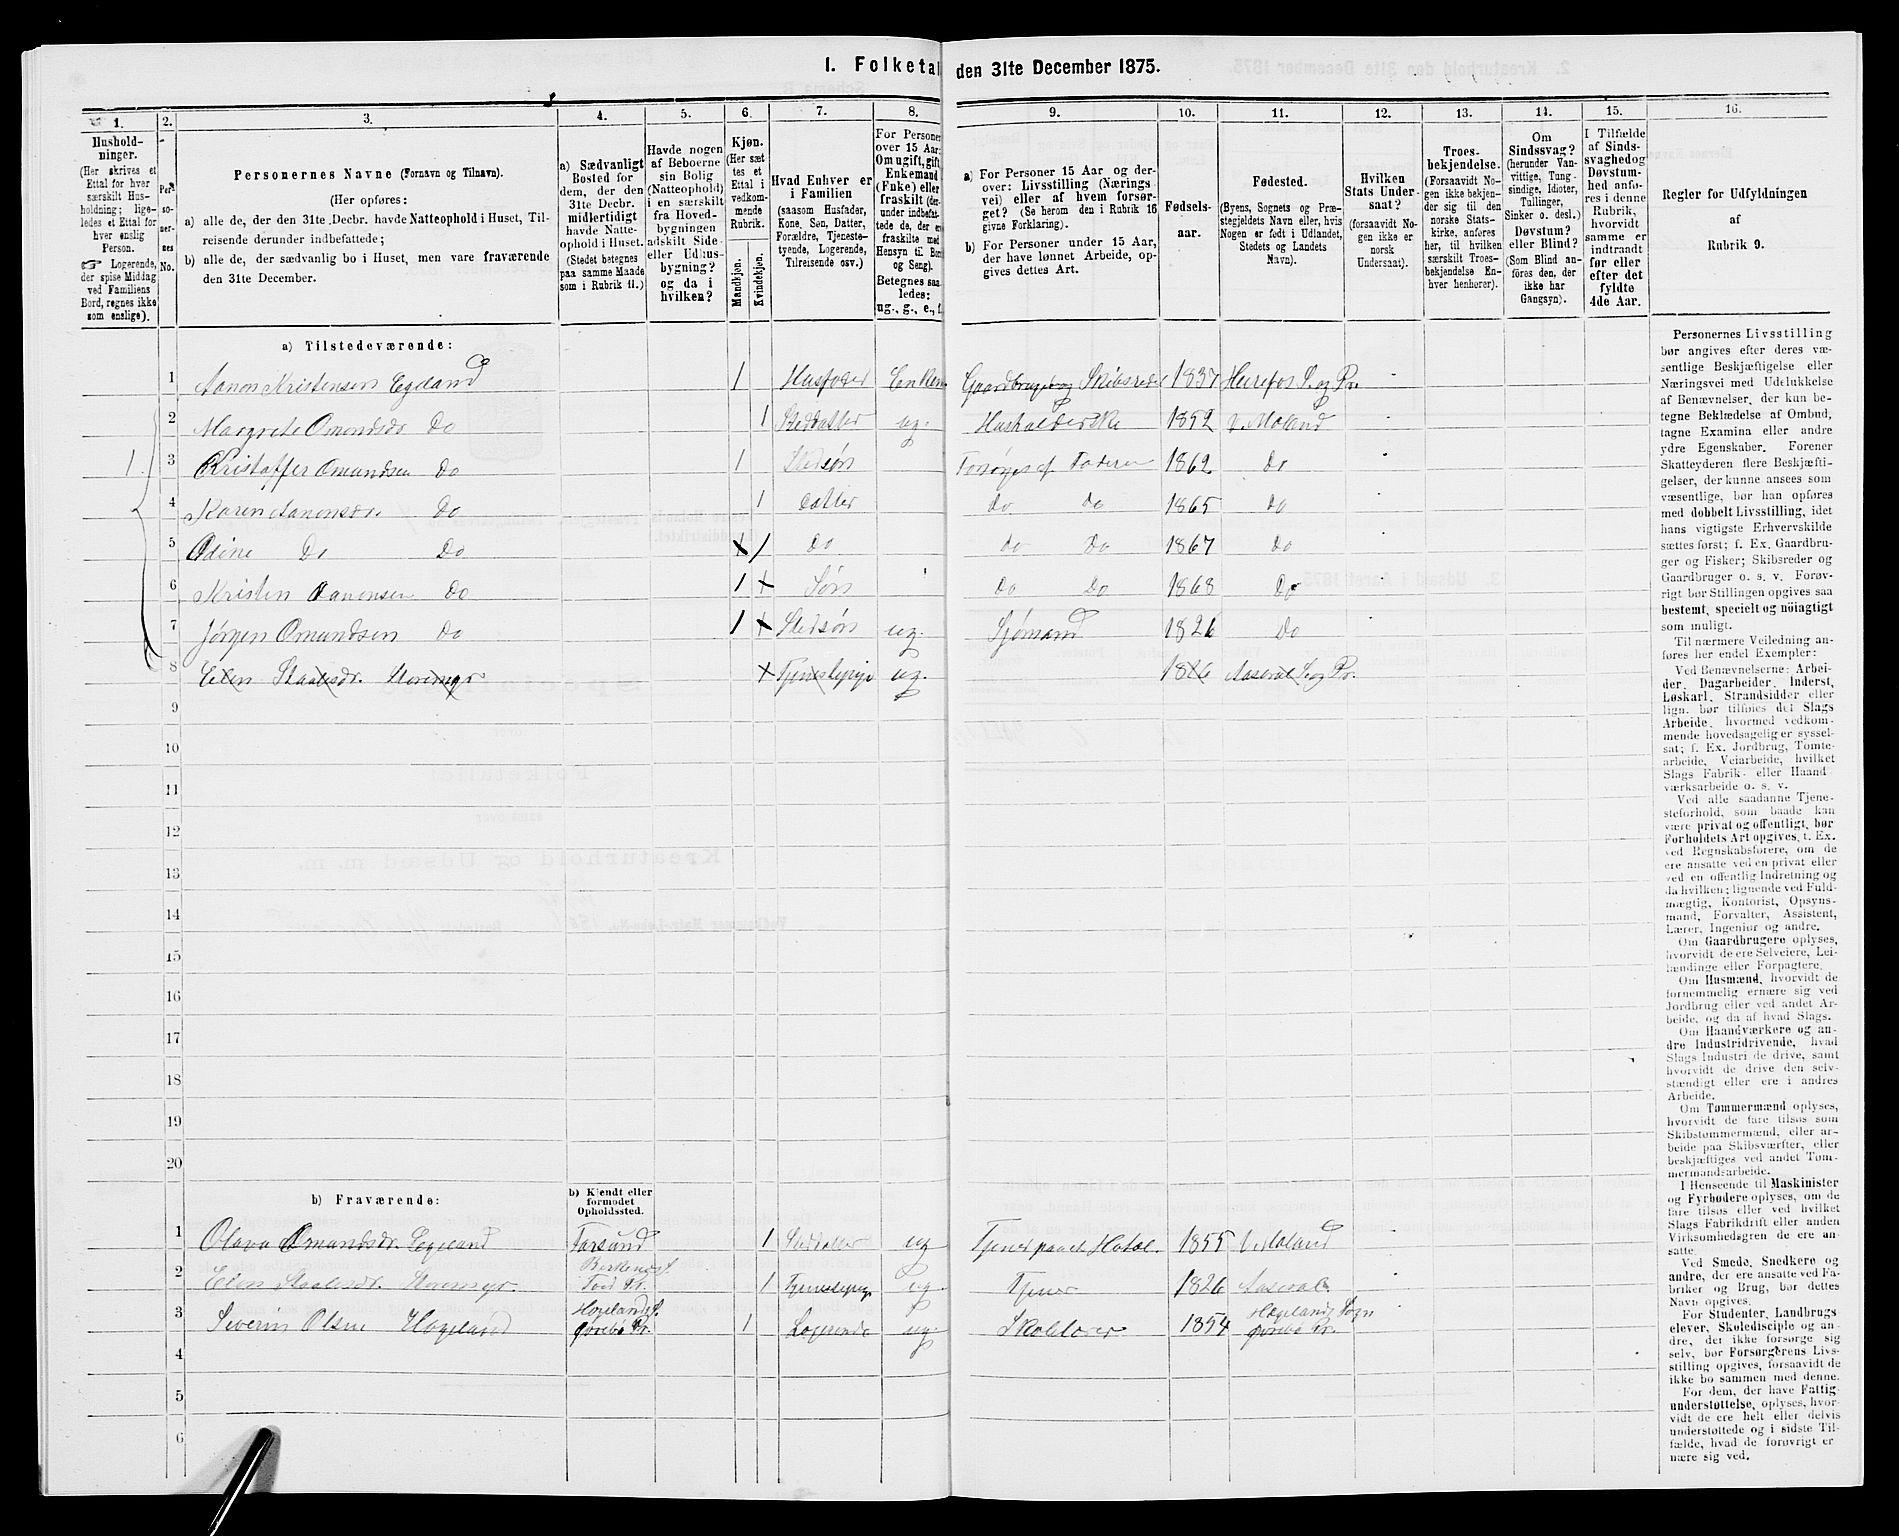 1. Folketal den 31te December 1875.
1. 2. 3. 4. 5. 6. 7. 8. 9. 10. 11. 12. 13. 14. 15. 16.
Hushold-
ninger.
(Her skrives et
Ettal for hver
særskilt Hus-
holdning; lige-
ledes et Ettal for
hver enslig
Person.
☞ Logerende,
der spise Middag
ved Familiens
Bord, regnes ikke
som enslige).
Per-
so-
ner-
nes
No.
Personernes Navne (Fornavn og Tilnavn).
(Her opføres:
a) alle de, der den 31te Decbr. havde Natteophold i Huset, Til-
reisende derunder indbefattede;
b) alle de, der sædvanlig bo i Huset, men vare fraværende
den 31te December.
a) Sædvanligt
Bosted for
dem, der den
31te Decbr.
midlertidigt
havde Natte-
ophold i Huset.
(Stedet betegnes
paa samme Maade
som i Rubrik 11.)
Havde nogen
af Beboerne
sin Bolig
(Natteophold)
i en særskilt
fra Hoved-
bygningen
adskilt Side-
eller Udhus-
bygning?
og da i
hvilken?
Kjøn.
(Her sæt-
tes et
Ettal i
vedkom-
mende
Rubrik.
Mandkjøn.
Kvindekjøn.
Hvad Enhver er
i Familien
(saasom Husfader,
Kone, Søn, Datter,
Forældre, Tjeneste-
tyende, Logerende,
Tilreisende osv.)
For Personer
over 15 Aar:
Om ugift, gift,
Enkemand
(Enke) eller
fraskilt (der-
under indbefat-
tede de, der ere
fraskilte med
Hensyn til Bord
og Seng).
Betegnes saa-
ledes:
ug., g., e., f.
a) For Personer 15 Aar og der-
over: Livsstilling (Nærings-
vei) eller af hvem forsør-
get? (Se herom den i Rubrik 16
givne Forklaring).
b) For Personer under 15 Aar,
der have lønnet Arbeide, op-
gives dettes Art.
Fødsels-
aar.
Fødested.
(Byens, Sognets og Præ-
stegjeldets Navn eller, hvis
Nogen er født i Udlandet,
Stedets og Landets
Navn).
Hvilken
Stats Under-
saat?
(forsaavidt No-
gen ikke er
norsk
Undersaat).
Troes-
bekjendelse.
(Forsaavidt No-
gen ikke bekjen-
der sig til den
norske Stats-
kirke, anføres
her, til hvilken
særskilt Troes-
bekjendelse En-
hver henhører).
Om
Sindssvag?
(herunder Van-
vittige, Tung-
sindige, Idioter,
Tullinger,
Sinker o. desl.)
Døvstum?
eller Blind?
(Som Blind an-
føres den, der
ikke har
Gangsyn).
I Tilfælde
af Sinds-
svaghed og
Døvstum-
hed anfø-
res i denne
Rubrik,
hvorvidt
samme er
indtraadt
før eller
efter det
fyldte
4de Aar.
Regler for Udfyldningen
af
Rubrik 9.
a) Tilstedeværende:
1 Aanon Kristensen Egeland 1 Husfader Enkem Gaardbruger og Skibsreder 1837 Herefos S. og Pr.
2 Margrete Omundsdr. Do 1 Steddatter ug. Husholderske 1852 V. Moland
1 3 Kristoffer Omundsen Do 1 Stedsøn Forsørges af Faderen 1862 Do
4 Karen Aanonsdr. Do 1 Datter do do 1865 Do
5 Odine Do Do 1 Do do Do 1867 Do
6 Kristen Aanonsen Do 1 Søn do Do 1868 Do
7 Jörgen Omundsen Do 1 Stedsøn ug. Sjømand 1826 Do
8 Elen Staalesdr. ug. 1826 Aaseral S. og Pr.
9
10
11
12
13
14
15
16
17
18
19
20
b) Fraværende:
b) Kjendt eller
formodet
Opholdssted.
1 Olava Omundsdr. Egeland Farsund 1 Steddatter ug Tjener paa et Hotel. 1855 V. Moland
2 Elen Staalesdr. Birkenes S. Tvid Pr. 1 Tjenestepige ug. Tjener 1826 Aaseral
3 Severin Olsen Hageland Hægelands S. Øvrebø Pr. 1 Logerende ug. Skolelærer 1854 Hægelands Sogn Øvrebø Pr.
4
5
6
Personernes Livsstilling
bør angives efter deres væ-
sentlige Beskjæftigelse eller
Næringsvei med Udelukkelse
af Benævnelser, der kun be-
tegne Beklædelse af Ombud,
tagne Examina eller andre
ydre Egenskaber. Forener
Skatteyderen flere Beskjæfti-
gelser, der kunne ansees som
væsentlige, bør han opføres
med dobbelt Livsstilling, idet
hans vigtigste Erhvervskilde
sættes først; f. Ex. Gaardbru-
ger og Fisker; Skibsreder og
Gaardbruger o. s. v. Forøv-
rigt bør Stillingen opgives saa
bestemt, specielt og nøiagtigt
som muligt.
Til nærmere Veiledning an-
føres her endel Exempler:
Ved Benævnelserne: Arbei-
der, Dagarbeider, Inderst,
Løskarl, Strandsidder eller
lign. bør tilføies det Slags
Arbeide, hvormed vedkom-
mende hovedsagelig er syssel-
sat; f. Ex. Jordbrug, Tomte-
arbeide, Veiarbeide, hvilket
Slags Fabrik- eller Haand-
værksarbeide o. s. v.
Ved alle saadanne Tjene-
steforhold, som baade kan
være privat og offentligt, bør
Forholdets Art opgives, t. Ex.
ved Regnskabsførere, om de
ere ansatte ved en privat eller
ved en offentlig Indretning og
da hvilken; lignende ved Fuld-
mægtig, Kontorist, Opsyns-
mand, Forvalter, Assistent,
Lærer, Ingeniør og andre.
Om Gaardbrugere oplyses,
hvorvidt de ere Selveiere, Lei-
lændinge eller Forpagtere.
Om Husmænd, hvorvidt de
fornemmelig ernære sig ved
Jordbrug eller ved andet Ar-
beide, og da af hvad Slags.
Om Haandværkere og an-
dre Industridrivende, hvad
Slags Industri de drive, samt
hvorvidt de drive den selv-
stændigt eller ere i andres
Arbeide.
Om Tømmermænd oplyses,
hvorvidt de fare tilsøs som
Skibstømmermænd, eller ar-
beide paa Skibsværfter, eller
beskjæftiges ved andet Tøm-
mermandsarbeide.
I Henseende til Maskinister
og Fyrbødere oplyses, om de
fare tilsøs eller ved hvilket
Slags Fabrikdrift eller anden
Virksomhedsgren de ere an-
satte.
Ved Smede, Snedkere og
andre, der ere ansatte ved Fa-
briker og Brug, bør dettes
Navn opgives.
For Studenter, Landbrugs-
elever, Skoledisciple og an-
dre, der ikke forsørge sig
selv, bør Forsørgerens Livs-
stilling opgives, forsaavidt de
ikke bo sammen med denne.
For dem, der have Fattig-
understøttelse, oplyses, hvor-
vidt de ere helt eller delvis
understøttede og i sidste Til-
fælde, hvad de forøvrigt er
nære sig ved.